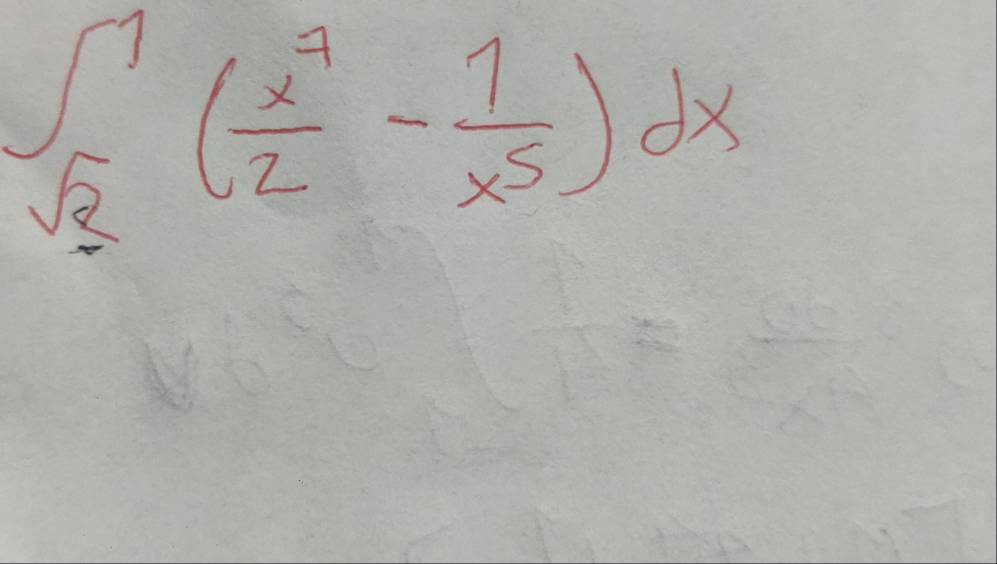 ∫_{√2}^{1} (x^7/2 - 1/x^5) dx